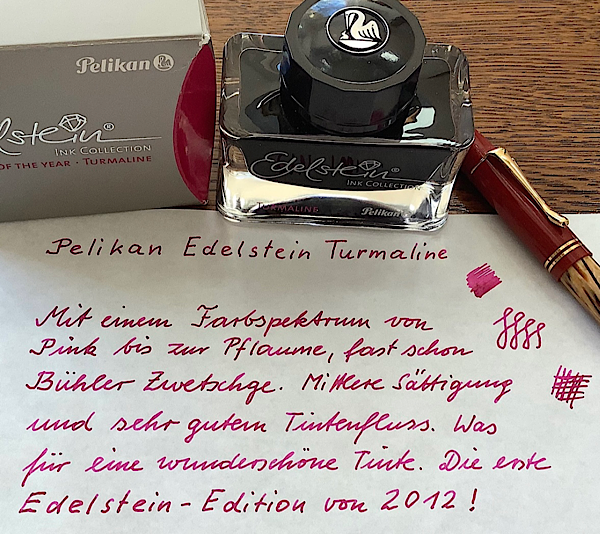 Pelikan
elstein®
INK COLLECTION
OF THE YEAR · TURMALINE
Edelstein®
INK COLLECTION
TURMALINE
Pelikan
Pelikan Edelstein Turmaline
Mit einem Farbspektrum von
Pink bis zur Pflaume, fast schon
Bühler Zwetschge. Mittlere Sättigung
und sehr gutem Tintenfluss. Was
für eine wunderschöne Tinte. Die erste
Edelstein-Edition von 2012!